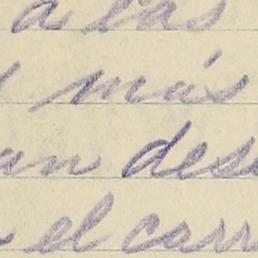 a las
más
an des
el carr